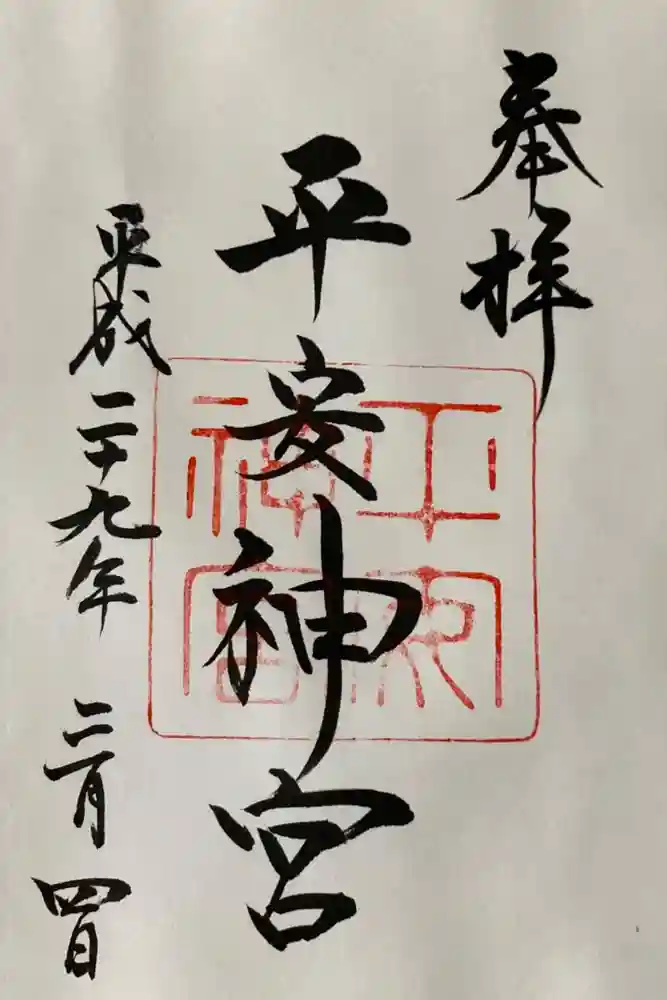 奉拝
平安神宮
平成二十九年 三月四日
平安神宮